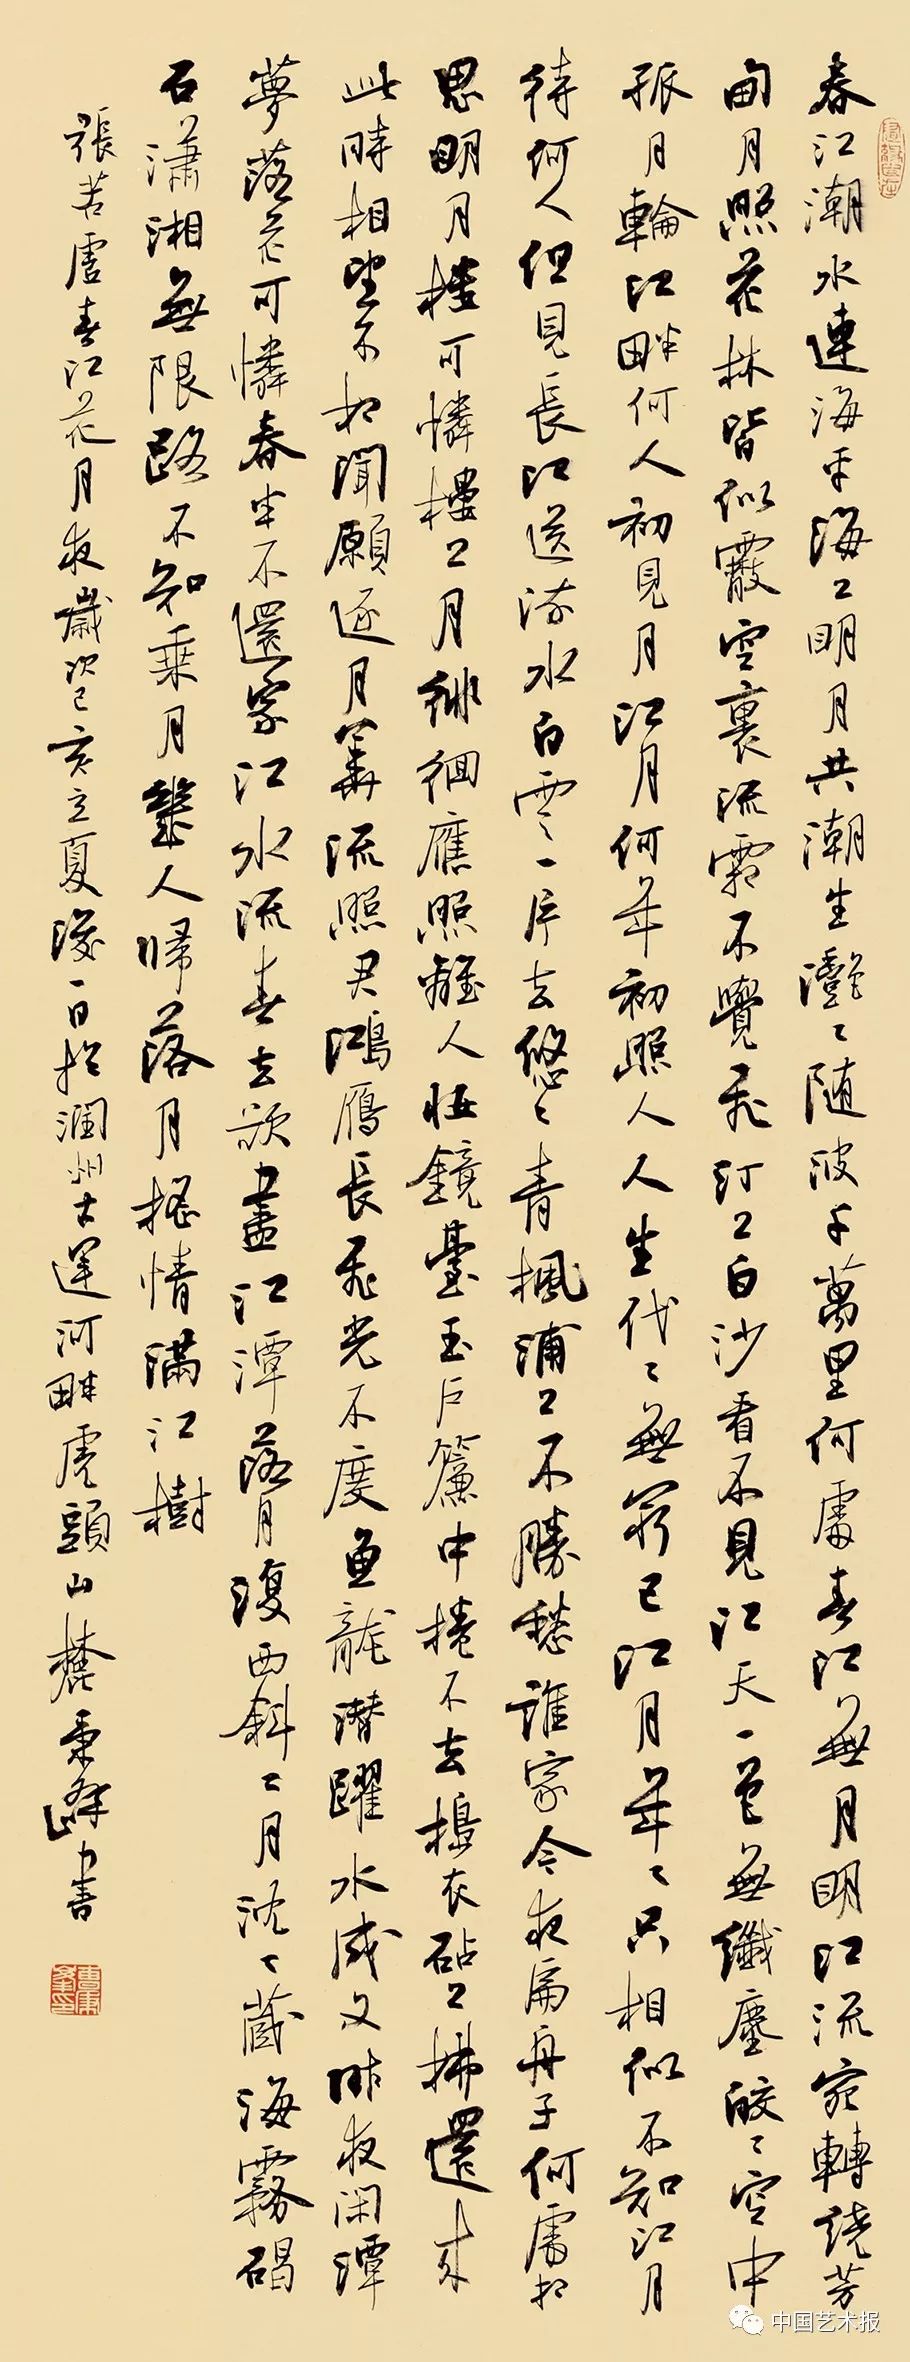 春江潮水連海平海上明月共潮生灩〻随波千萬里何處春江無月明江流宛轉繞芳
甸月照花林皆似霰空裏流霜不覺飛汀上白沙看不見江天一色無纖塵皎〻空中
孤月輪江畔何人初見月江月何年初照人人生代〻無窮已江月年〻只相似不知江月
待何人但見長江送流水白雲一片去悠〻青楓浦上不勝愁誰家今夜扁舟子何處相
思明月樓可憐樓上月徘徊應照離人妝鏡臺玉戶簾中捲不去搗衣砧上拂還來
此時相望不相聞願逐月華流照君鴻雁長飛光不度魚龍潜躍水成文昨夜閑潭
夢落花可憐春半不還家江水流春去欲盡江潭落月復西斜〻月沈〻藏海霧碣
石瀟湘無限路不知乘月幾人歸落月搖情滿江樹
張若虛春江花月夜歲次己亥立夏後一日於潤州古運河畔虎頭山麓秉峰書
曹秉峰印
中国艺术报